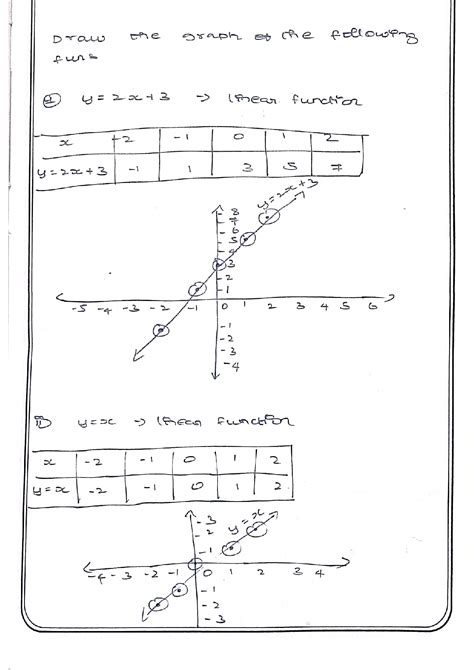 Draw the graph of the following
funs
y = 2x+3 -> linear function
x -2 -1 0 1 2
y=2x+3 -1 1 3 5 7
y=2x+3
8
7
6
5
4
3
2
1
-5 -4 -3 -2 -1 0 1 2 3 4 5 6
-1
-2
-3
-4
ii) y=x -> linear function
x -2 -1 0 1 2
y=x -2 -1 0 1 2
3
2
y=x
1
-4 -3 -2 -1 0 1 2 3 4
-1
-2
-3